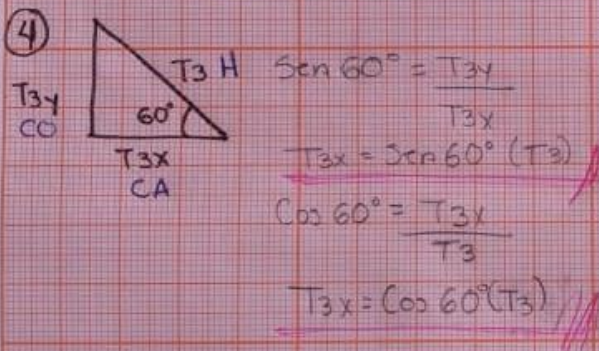 4
T3 H
T3y
CO
60°
T3x
CA
Sen 60° = T3y
T3x
T3x = Sen 60° (T3)
Cos 60° = T3x
T3
T3x = Cos 60° (T3)